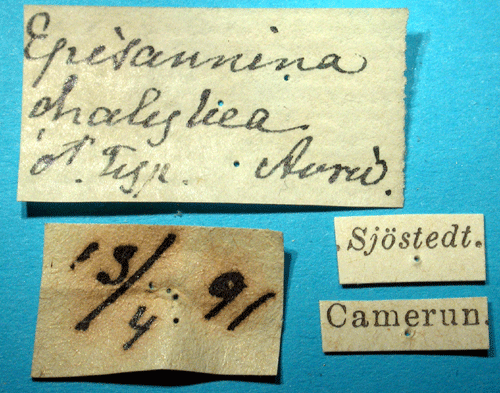 Episannina
chalybea
♂. Typ. Auriv.
13/4 91
Sjöstedt.
Camerun.